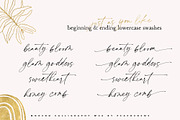 just as you like
beginning & ending lowercase swashes
beauty bloom beauty bloom
glam goddess glam goddess
sweetheart sweetheart
honey comb honey comb